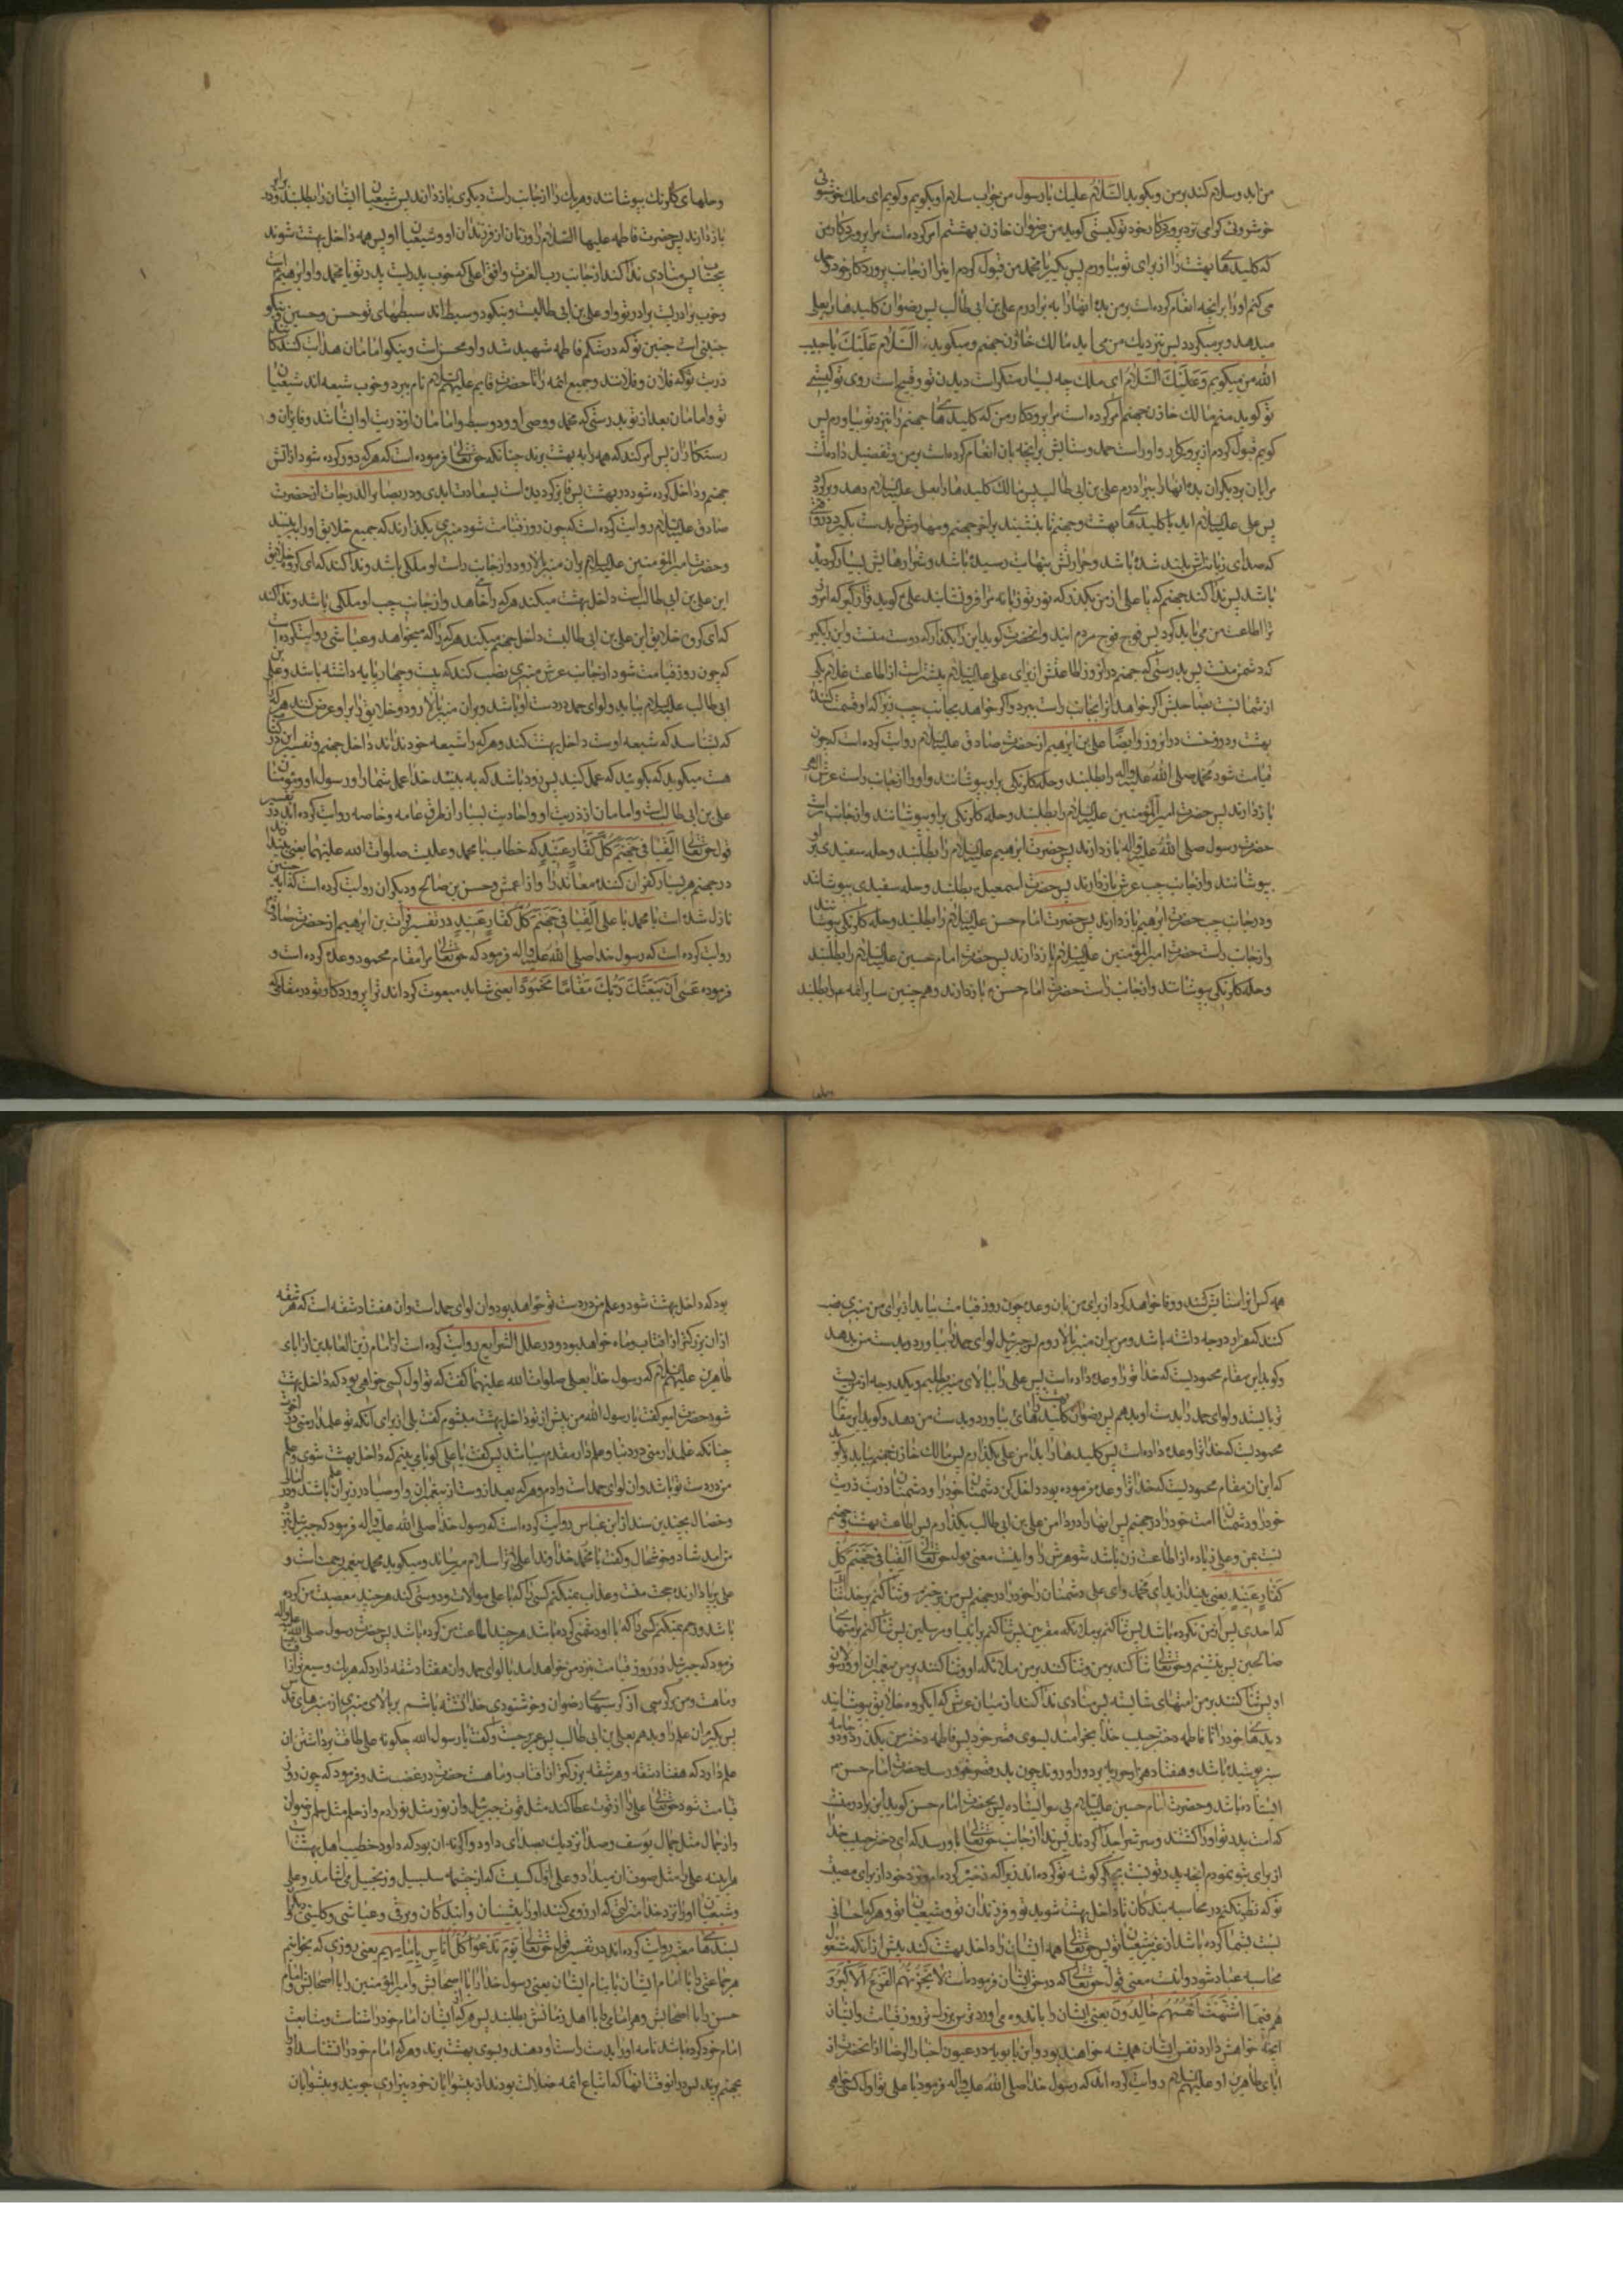 من آید و سلام کند بر من و بگوید السّلام علیك یا رسول من جواب سلام او بگویم و گویم ای ملك خوشبوی
خوش روی گرامی نزد پروردکار خود تو کیستی گوید من رضوان خازن بهشتم امر کرده است مرا پروردکار من
که کلیدهای بهشت را از برای تو بیاورم پس بگیر یا محمد من قبول کردم اینرا از جانب پروردکار خود حمد
می کنم او را بر آنچه انعام کرده است بر من بده انها را به برادرم علی بن ابی طالب پس رضوان کلیدها را بعلی
میدهد و بر میکردد پس نزدیك من می آید مالك خازن جهنم و میکوید السَّلام عَلَیْكَ یا حبیب
الله من میکویم وَ عَلَیْكَ السَّلامُ ای ملك چه بسیار منکر است دیدن تو و قبیح است روی تو کیستی
تو کوید منم مالك خازن جهنم امر کرده است مرا پروردکار من که کلیدهای جهنم را نزد تو بیاورم پس
کویم قبول کردم از پروردکار و او راست حمد و ستایش بر انچه بان انعام کرده است بر من و تفضیل داده است
مرا بان بر دیکران بده انها را ببرادرم علی بن ابی طالب پس مالك کلیدها را بعلی علیه السلام دهد و برکردد
پس علی علیه السلام اید با کلیدهای بهشت و جهنم تا بنشیند بر آخر جهنم و مهارش را بدست بگیرد در وقتی
که صدای زبانه اش بلند شده باشد و حرارتش بنهایت رسیده باشد و شرارهایش بسیار کردیده
باشد پس ندا کند جهنم که یا علی از من بکذر که نور تو زبانه مرا فرو نشانید علی کوید قرار گیر که امروز
ترا اطاعت من می باید کرد پس فوج فوج مردم ایند و انحضرت کوید این را بکذار که دوست منست و این را بکیر
که دشمن منست پس بدرستی که جهنم در انروز اطاعتش از برای علی علیه السلام بیشتر است از اطاعت غلام یکی
از شما نسبت بصاحبش اکر خواهد انرا بجانب راست ببرد و اکر خواهد بجانب چپ زیرا که او قسمت کننده
بهشت و دوزخست در انروز و ایضًا علی بن ابرهیم از حضرت صادق علیه السلام روایت کرده است که چون
قیامت شود محمد صلی الله علیه و اله را بطلبند و حله کلرنکی بر او بپوشانند و او را از جانب راست عرش الهی
باز دارند پس حضرت امیر المؤمنین علیه السلام را بطلبند و حله کلرنکی بر او بپوشانند و از جانب راست
حضرت رسول صلی الله علیه و اله باز دارند پس حضرت ابرهیم علیه السلام را بطلبند و حله سفیدی بر او
بپوشانند و از جانب چپ عرش باز دارند پس حضرت اسمعیل بطلبند و حله سفیدی بپوشانند
و در جانب چپ حضرت ابرهیم باز دارند پس حضرت امام حسن علیه السلام را بطلبند و حله کلرنکی بپوشانند
و از جانب راست حضرت امیر المؤمنین علیه السلام باز دارند پس حضرت امام حسین علیه السلام را بطلبند
و حله کلرنکی بپوشانند و از جانب راست حضرت امام حسن ع باز دارند و همچنین سایر ائمه ع را بطلبند
و حلهای کلرنك بپوشانند و هر یك را از جانب راست دیکری باز دارند پس شیعیان ایشان را بطلبند و در برابر
باز دارند پس حضرت فاطمه علیها السّلام را و زنان از فرزندان او و شیعیان او پس همه داخل بهشت شوند
بیحساب پس منادی ندا کند از جانب رب العزت و افق اعلی که خوب پدریست پدر تو یا محمد و او ابرهیم است
و خوب برادریست برادر تو و او علی بن ابی طالبست و نیکو دو سبطاند سبطهای تو حسن و حسین و نیکو
جنینی است جنین تو که در شکم فاطمه شهید شد و او محسن است و نیکو امامان هدایت کنندکانند
ذریت تو که فلان و فلانند و جمیع ائمه را تا حضرت قایم علیهم السلام نام ببرد و خوب شیعه اند شیعیان
تو و امامان بعد از تو بدرستی که محمد و وصی او و دو سبط او امامان از ذریت او ایشانند فایزان و
رستکاران پس امر کند که همه را به بهشت برند چنانکه حق تعالی فرموده است که هر که دور کرده شود از آتش
جهنم و داخل کرده شود در بهشت پس فایز کردیده است بسعادت ابدی و در بصایر الدرجات از حضرت
صادق علیه السلام روایت کرده است که چون روز قیامت شود منبری بکذارند که جمیع خلایق او را ببینند
و حضرت امیر المؤمنین علیه السلام بران منبر بالا رود و از جانب راست او ملکی باشد و ندا کند که ای کروه خلایق
این علی بن ابی طالبست داخل بهشت میکند هر که را خواهد و از جانب چپ او ملکی باشد و ندا کند
که ای کروه خلایق این علی بن ابی طالبست داخل جهنم میکند هر که را که میخواهد و عیاشی روایت کرده است
که چون روز قیامت شود از جانب عرش منبری نصب کنند که بیست و چهار پایه داشته باشد و علی بن
ابی طالب علیه السلام بیاید و لوای حمد در دست او باشد و بران منبر بالا رود و خلایق را بر او عرض کنند هر که را
که بشناسد که شیعه اوست داخل بهشت کند و هر که را شیعه خود نداند داخل جهنم و تفسیر این در
هست میکوید که بکوئید که عمل کنید پس زود باشد که به بیند خدا عمل شما را و رسول او و مؤمنان
علی بن ابی طالبست و امامان از ذریت او و احادیث بسیار از طرق عامه و خاصه روایت کرده اند در تفسیر
قول حق تعالی اَلْقِیَا فِی جَهَنَّمَ کُلَّ کَفَّارٍ عَنِیدٍ که خطاب با محمد و علیست صلوات الله علیهما یعنی بیندازید
در جهنم هر بسیار کفران کننده معاند را و از اعمش و حسن بن صالح و دیکران روایت کرده است که این آیه چنین
نازل شده است یا محمد یا علی اَلْقِیَا فِی جَهَنَّمَ کُلَّ کَفَّارٍ عَنِیدٍ در تفسیر فرات بن ابرهیم از حضرت صادق ع
روایت کرده است که رسول خدا صلی الله علیه و اله فرمود که حق تعالی مرا مقام محمود وعده کرده است و
فرموده عَسٰی اَنْ یَبْعَثَكَ رَبُّكَ مَقَامًا مَحْمُودًا یعنی شاید مبعوث کرداند ترا پروردکار تو در مقامی که
همه کس ترا ستایش کنند و وفا خواهد کرد از برای من بان وعده چون روز قیامت بیاید از برای من منبری نصب
کنند که هزار درجه داشته باشد و من بران منبر بالا روم پس جبرئیل لوای حمد را بیاورد و بدست من بدهد
و کوید این مقام محمودیست که خدا ترا وعده داده است پس علی را ببالای منبر بطلبم و یکدرجه از من پست
تر بایستد و لوای حمد را بدست او بدهم پس رضوان کلیدهای بهشت بیاورد و بدست من دهد و کوید این مقام
محمودیست که خدا ترا وعده داده است پس کلیدها را بدامن علی بکذارم پس مالك خازن جهنم بیاید و کوید
که این ان مقام محمودیست که خدا ترا وعده فرموده بود داخل کن دشمنان خود را و دشمنان ذریت
خود را و دشمنان امت خود را در جهنم پس انها را در دامن علی بن ابی طالب بکذارم پس اطاعت بهشت و جهنم
نسبت بمن و علی زیاده از اطاعت زن باشد شوهرش را و اینست معنی قول حق تعالی اَلْقِیَا فِی جَهَنَّمَ کُلَّ
کَفَّارٍ عَنِیدٍ یعنی بیندازید ای محمد و ای علی دشمنان را خود را در جهنم پس من برخیزم و ثنا کنم بر خدا ثنائی
که احدی پس از من نکرده باشد پس ثنا کنم بر ملائکه مقربین پس ثنا کنم بر انبیا و مرسلین پس ثنا کنم بر امتهای
صالحین پس بنشینم و حق تعالی ثنا کند بر من و ثنا کنند بر من ملائکه او و ثنا کنند بر من پیغمبران او و رسولان
او پس ثنا کنند بر من امتهای شایسته پس منادی ندا کند از میان عرش که ای کروه خلایق بپوشانید
دیدهای خود را تا فاطمه دختر حبیب خدا بخرامد بسوی قصر خود پس فاطمه دختر من بکذرد و دو جامه
سبز پوشیده باشد و هفتاد هزار حوریه بر دور او روند چون بدر قصر خود رسد حضرت امام حسن ع
ایستاده باشد و حضرت امام حسین علیه السلام بی سر ایستاده پس بحضرت امام حسن کوید این برادر منست
که امت پدر تو او را کشتند و سرش را جدا کردند پس ندا از جانب حق تعالی باو رسد که ای دختر حبیب خدا
از برای تو نمودم انچه پدر تو نسبت بجکر کوشه تو کرده اند زیرا که ذخیره کرده ام نزد خود از برای مصیبت
تو که نظر نکنم در محاسبه بندکان تا داخل بهشت شوید تو و فرزندان تو و شیعیان تو و هر که احسانی
نسبت بشما کرده باشد از غیر شیعیان تو پس حق تعالی همه ایشان را داخل بهشت کند پیش از انکه مشغول
محاسبه عباد شود و اینست معنی قول حق تعالی که در حق ایشان فرموده است لا یَحْزُنُهُمُ الْفَزَعُ الْاَکْبَرُ وَ
هُمْ فِیمَا اشْتَهَتْ اَنْفُسُهُمْ خَالِدُونَ یعنی ایشان را باندوه می اورد ترس بزرکتر روز قیامت و ایشان
انچه خواهش دارد نفس ایشان همیشه خواهند بود و ابن بابویه در عیون اخبار الرضا از انحضرت از
ابای طاهرین او علیهم السلام روایت کرده اند که رسول خدا صلی الله علیه و اله فرمود یا علی تو اول کسی خواهی
بود که داخل بهشت شود و علم من در دست تو خواهد بود و ان لوای حمد است و ان هفتاد شقه است که هر شقه
ازان بزرکتر از افتاب و ماه خواهد بود و در علل الشرایع روایت کرده است از امام زین العابدین از ابای
طاهرین علیهم السلام که رسول خدا بعلی صلوات الله علیهما کفت که تو اول کسی خواهی بود که داخل بهشت
شود حضرت امیر کفت یا رسول الله من پیش از تو داخل بهشت میشوم کفت بلی از برای انکه تو علمدار منی در اخرت
چنانکه علمدار منی در دنیا و علمدار مقدم میباشد پس کفت یا علی کویا می بینم که داخل بهشت شوی و علم
من در دست تو باشد و ان لوای حمد است و ادم و هر که بعد از وست از پیغمبران و اوصیا در زیر ان باشند و در امالی
و خصال بچندین سند از ابن عباس روایت کرده است که رسول خدا صلی الله علیه و اله فرمود که جبرئیل نزد
من امد شاد و خوشحال و کفت یا محمد خداوند اعلی ترا سلام میرساند و میکوید محمد پیغمبر رحمت است و
علی بر پا دارنده حجت منست و عذاب نمیکنم کسی را که با علی موالات و دوستی کند هر چند معصیت من کرده
باشد و رحم نمیکنم کسی را که با او دشمنی کرده باشد هر چند اطاعت من کرده باشد پس حضرت رسول صلی الله علیه و اله
فرمود که جبرئیل در روز قیامت نزد من خواهد امد با لوای حمد و ان هفتاد شقه دارد که هر یك وسیع تر از افتاب
و ماهست و من بر کرسی از کرسیهای رضوان و خوشنودی خدا نشسته باشم بر بالای منبری از منبرهای قدس
پس بکیرم ان علم را و بدهم بعلی بن ابی طالب پس عمر برجست و کفت یا رسول الله چکونه علی طاقت برداشتن ان
علم دارد که هفتاد شقه و هر شقه بزرکتر از افتاب و ماهست حضرت در غضب شد و فرمود که چون روز
قیامت شود حق تعالی علی را از قوت عطا کند مثل قوت جبرئیل و از نور مثل نور ادم و از حلم مثل حلم رضوان
و از جمال مثل جمال یوسف و صدا نزدیك بصدای داود و اکر نه ان بود که داود خطیب اهل بهشت است
هر اینه علی را مثل صوت ان میداد و علی اول کسیست که از چشمه سلسبیل و زنجبیل می اشامد و علی
و شیعیان او را نزد خدا منزلتی که ارزوی کنند او را پیشینیان و ایندکان و برقی و عیاشی و کلینی و دیکران
بسندهای معتبر روایت کرده اند در تفسیر قول حق تعالی یَوْمَ نَدْعُوا کُلَّ اُنَاسٍ بِاِمَامِهِمْ یعنی روزی که بخوانیم
هر جماعتی را با امام ایشان یا بنام ایشان یعنی رسول خدا را با اصحابش و امیر المؤمنین را با اصحابش و امام
حسن را با اصحابش و هر امامی را با اهل زمانش بطلبند پس هر که از ایشان امام خود را شناخت و متابعت
امام خود کرده باشد نامه او را بدست راست او دهند و بسوی بهشت برند و هر که امام خود را نشناسد او را
بجهنم برند پس در انوقت انها که اتباع ائمه ضلالت بودند از پیشوایان خود بیزاری جویند و پیشوایان